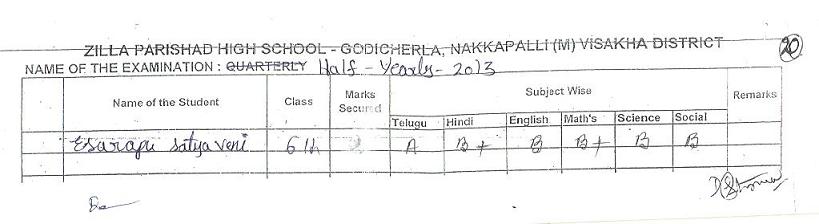 ZILLA PARISHAD HIGH SCHOOL - GODICHERLA, NAKKAPALLI (M) VISAKHA DISTRICT
20
NAME OF THE EXAMINATION : QUARTERLY Half - Yearly - 2013
Name of the Student Class Marks Secured Subject Wise Remarks
Telugu Hindi English Math's Science Social
Esarapu Satyaveni 6th A B+ B B+ B B